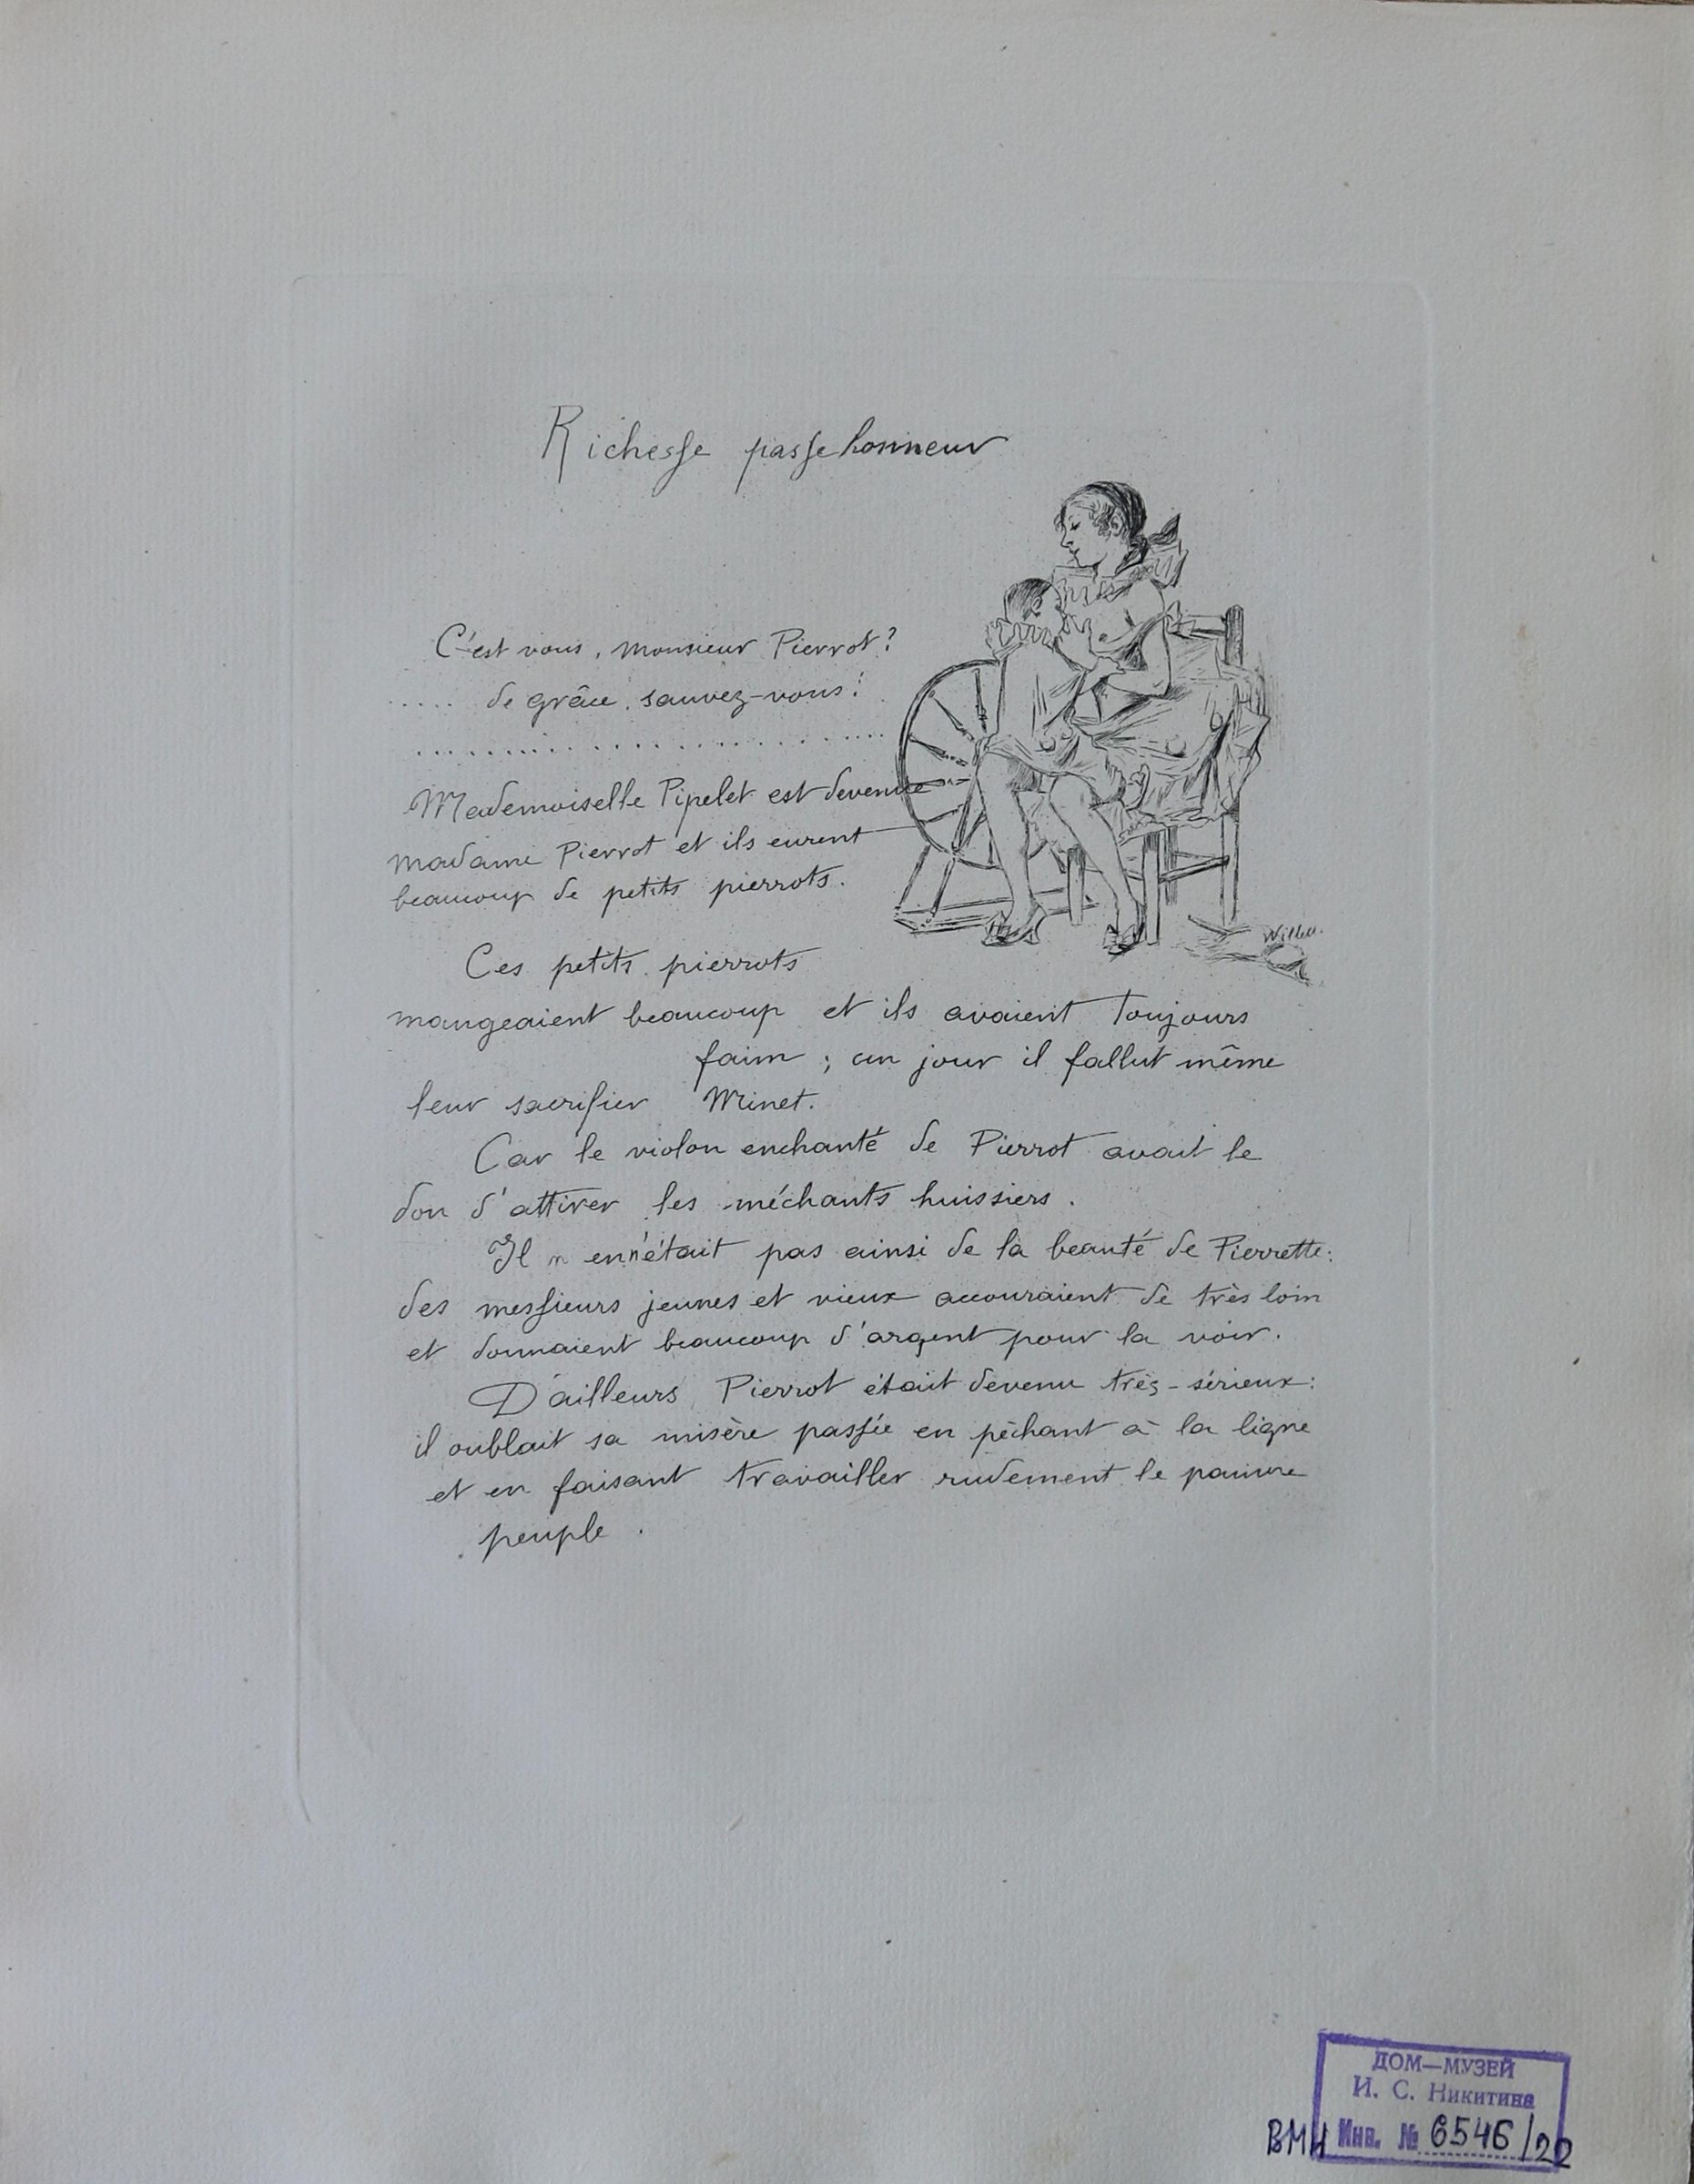 Richesse passe honneur
C'est vous, monsieur Pierrot?
.... de grâce, sauvez-vous!
..............................
Mademoiselle Pipelet est devenue
madame Pierrot et ils eurent
beaucoup de petits pierrots.
Willette.
Ces petits pierrots
mangeaient beaucoup et ils avaient toujours
faim ; un jour il fallut même
leur sacrifier Minet.
Car le violon enchanté de Pierrot avait le
don d'attirer les méchants huissiers.
Il n en n'était pas ainsi de la beauté de Pierrette:
des messieurs jeunes et vieux accouraient de très loin
et donnaient beaucoup d'argent pour la voir.
D'ailleurs Pierrot était devenu très-sérieux:
il oublait sa misère passée en pêchant à la ligne
et en faisant travailler rudement le pauvre
peuple.
ДОМ—МУЗЕЙ
И. С. Никитина
ВМН Инв. № 6546/22